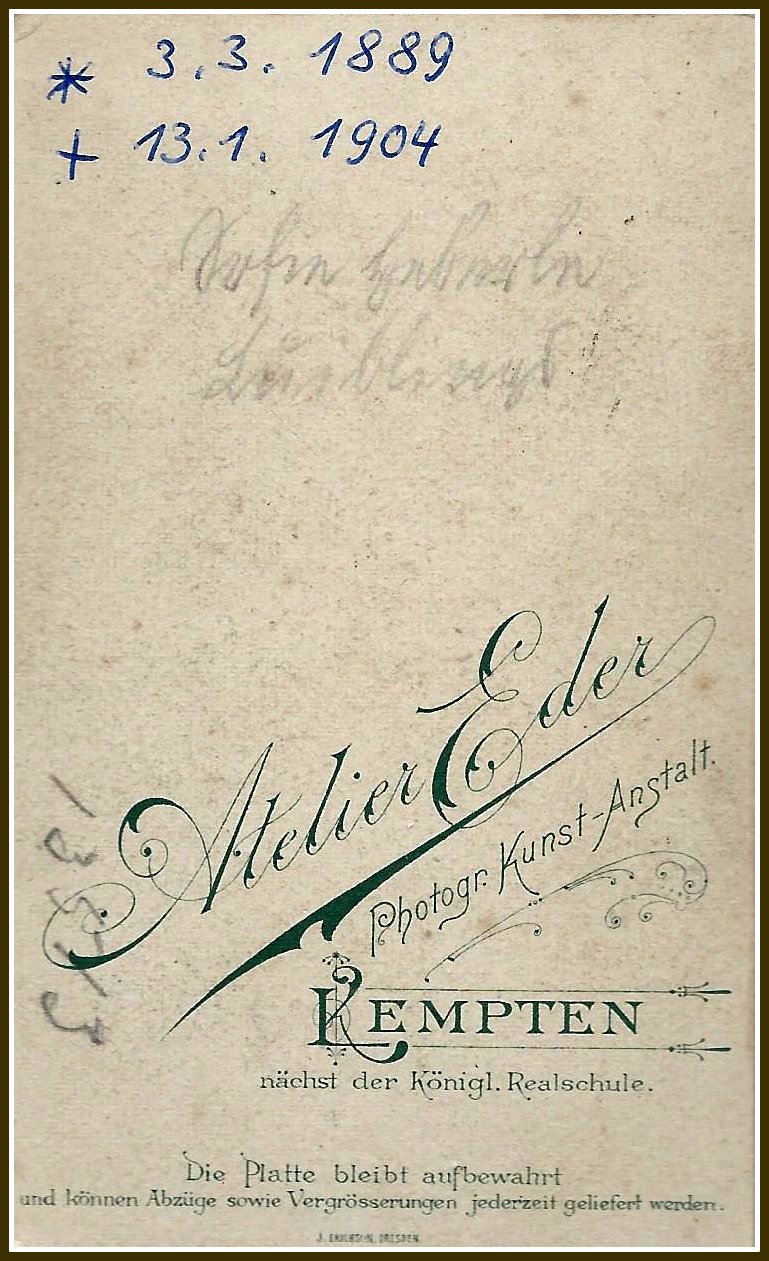 * 3.3. 1889
+ 13.1. 1904
Sofie Heberle
Luiblings
Atelier Eder
Photogr. Kunst-Anstalt.
KEMPTEN
nächst der Königl. Realschule.
Die Platte bleibt aufbewahrt
und können Abzüge sowie Vergrösserungen jederzeit geliefert werden.
J. ERICHSON, DRESDEN.